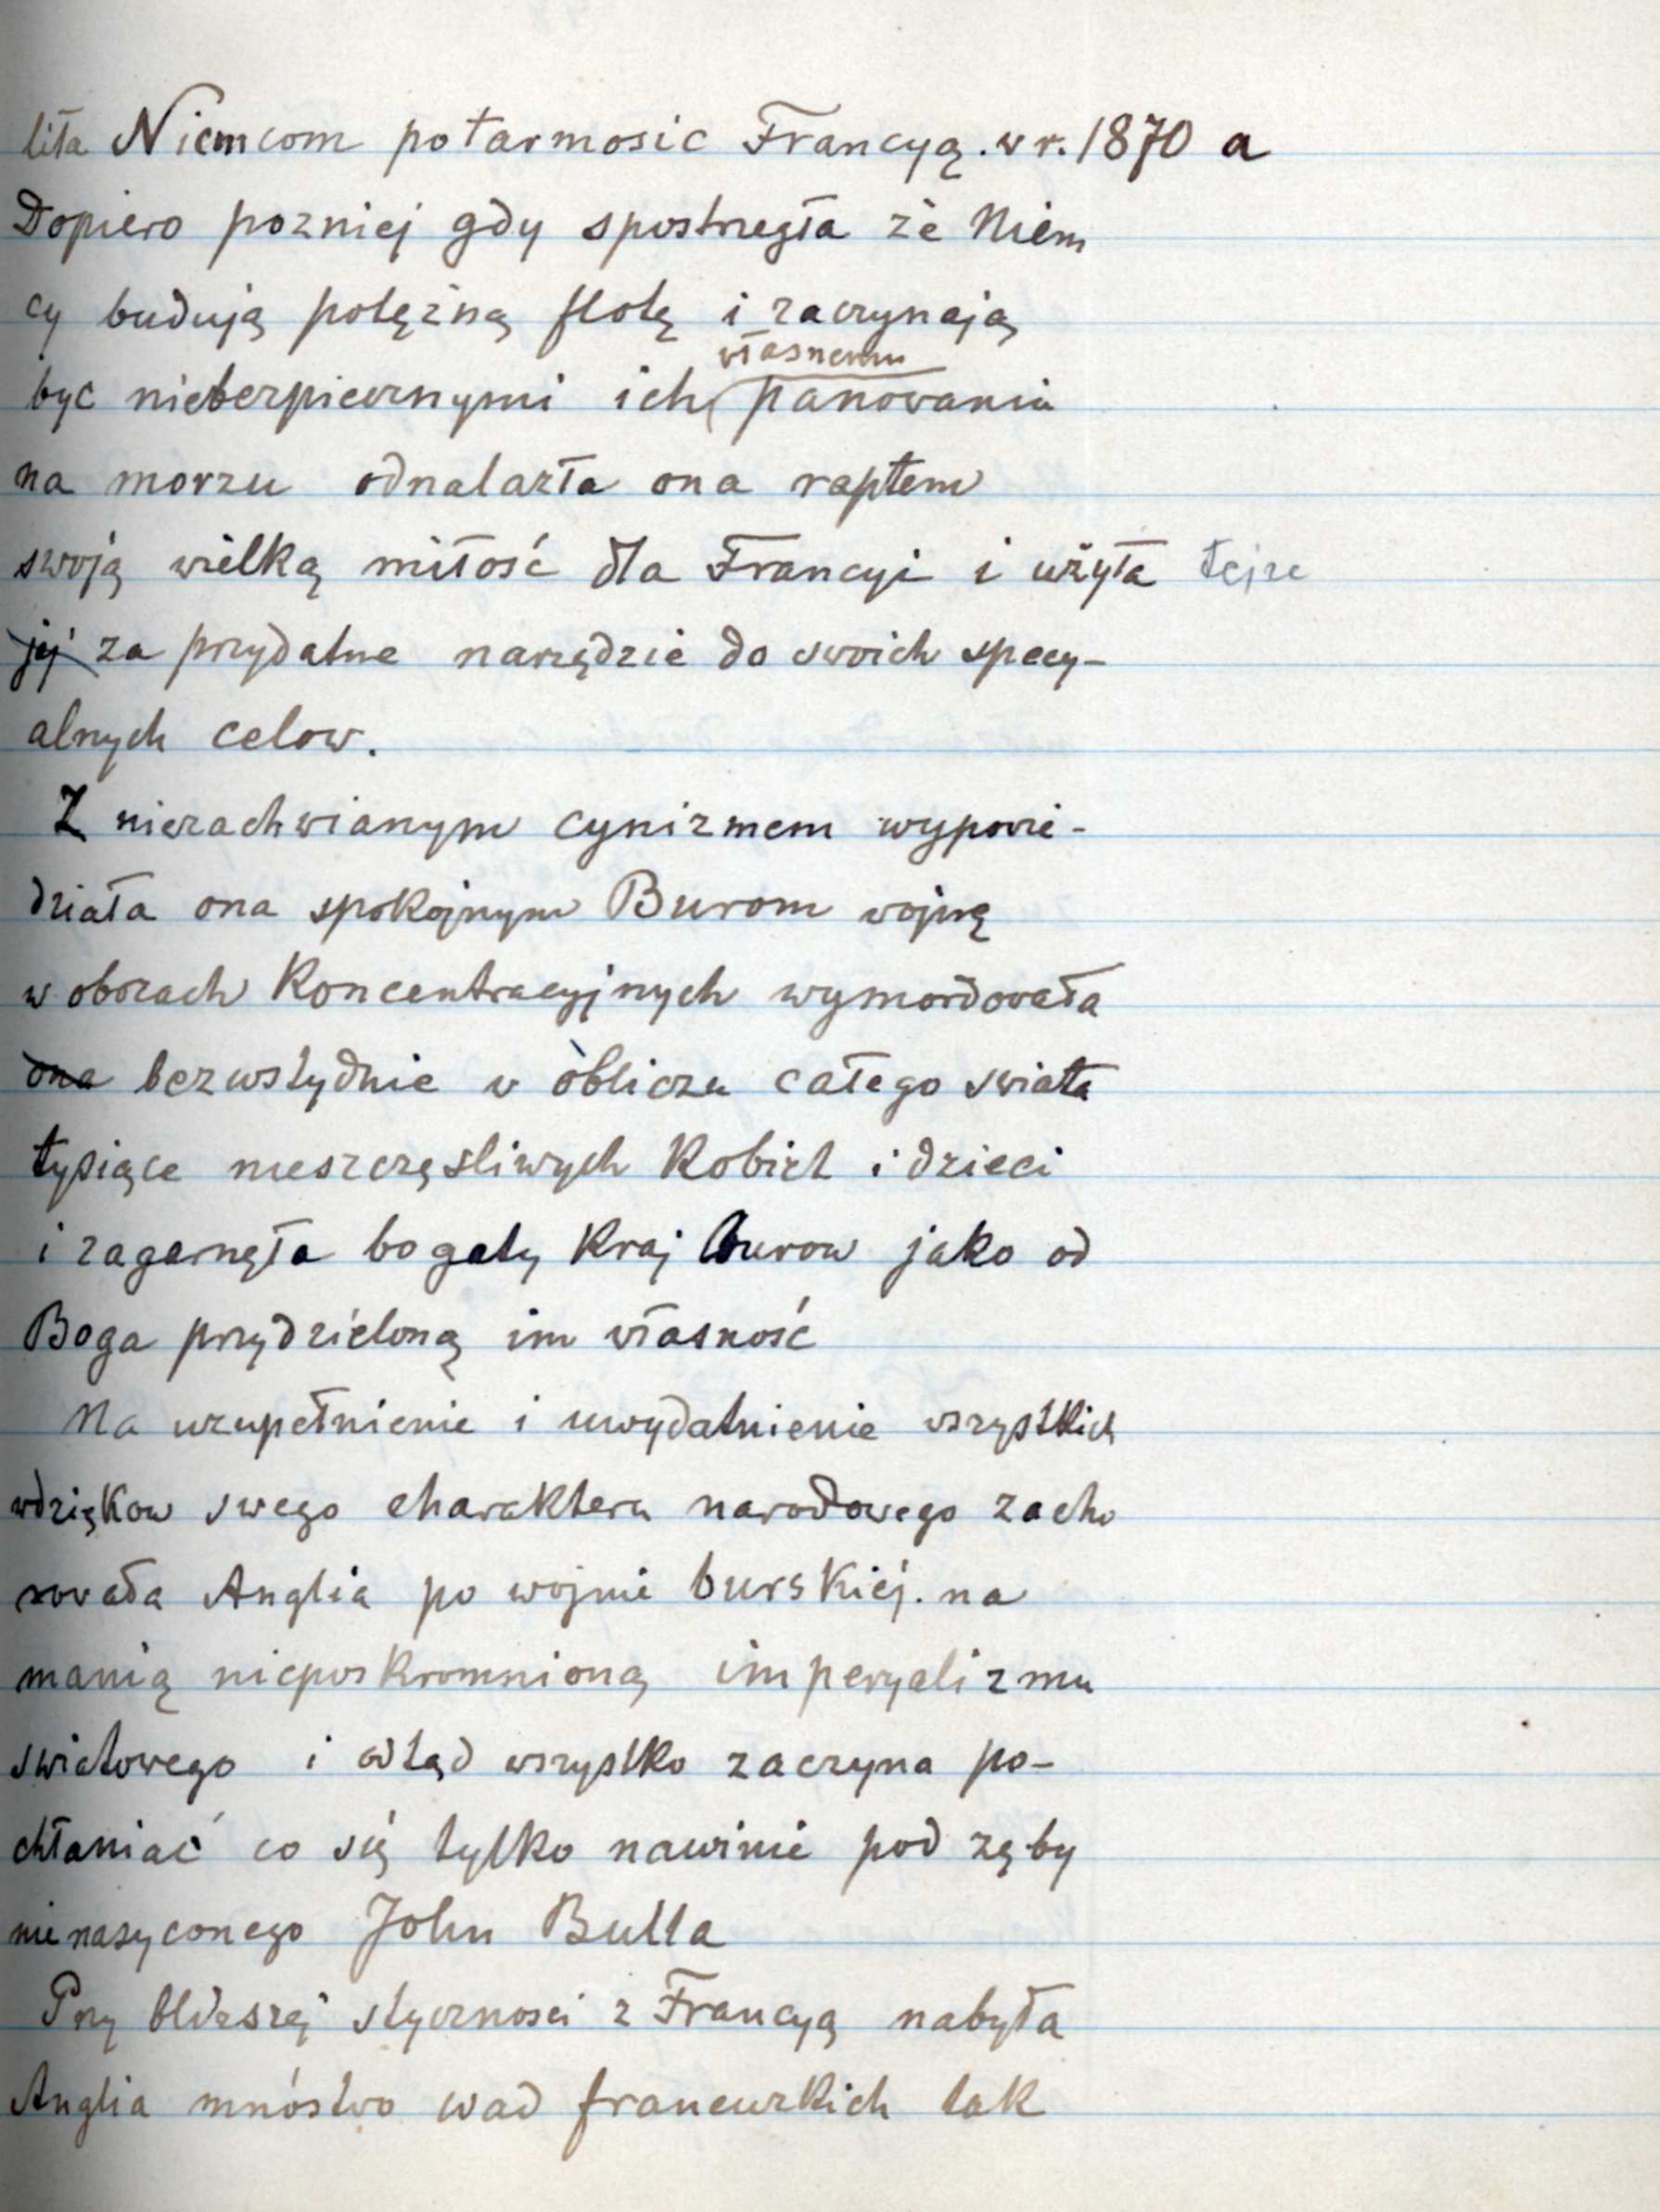 liła Niemcom potarmosic Francyą. w r. 1870 a
Dopiero pozniej gdy spostrzegła że Niem
cy budują potężną flotę i zaczynają
własnemu
byc niebezpiecznymi ich panowaniu
na morzu odnalazła ona raptem
swoją wielką miłość dla Francyi i użyła tejże
jej za przydatne narzędzie do swoich specy-
alnych celow.
Z niezachwianym cynizmem wypowie-
działa ona spokojnym Burom wojnę
w obozach Koncentracyjnych wymordowała
ona bezwstydnie w obliczu całego swiata
tysiące nieszczęsliwych Kobiet i dzieci
i zagarnęła bogaty Kraj Burow jako od
Boga przydzieloną im własność
Na uzupełnienie i uwydatnienie wszystkich
wdzięKow swego charakteru narodowego zacho
rowała Anglia po wojnie bursKiej. na
manią nieposKromnioną imperyalizmu
swiatowego i odtąd wszystko zaczyna po-
chłaniać co się tylko nawinie pod zęby
nienasyconego John Bulla
Przy bliższej stycznosci z Francyą nabyła
Anglia mnóstwo wad francuzkich tak